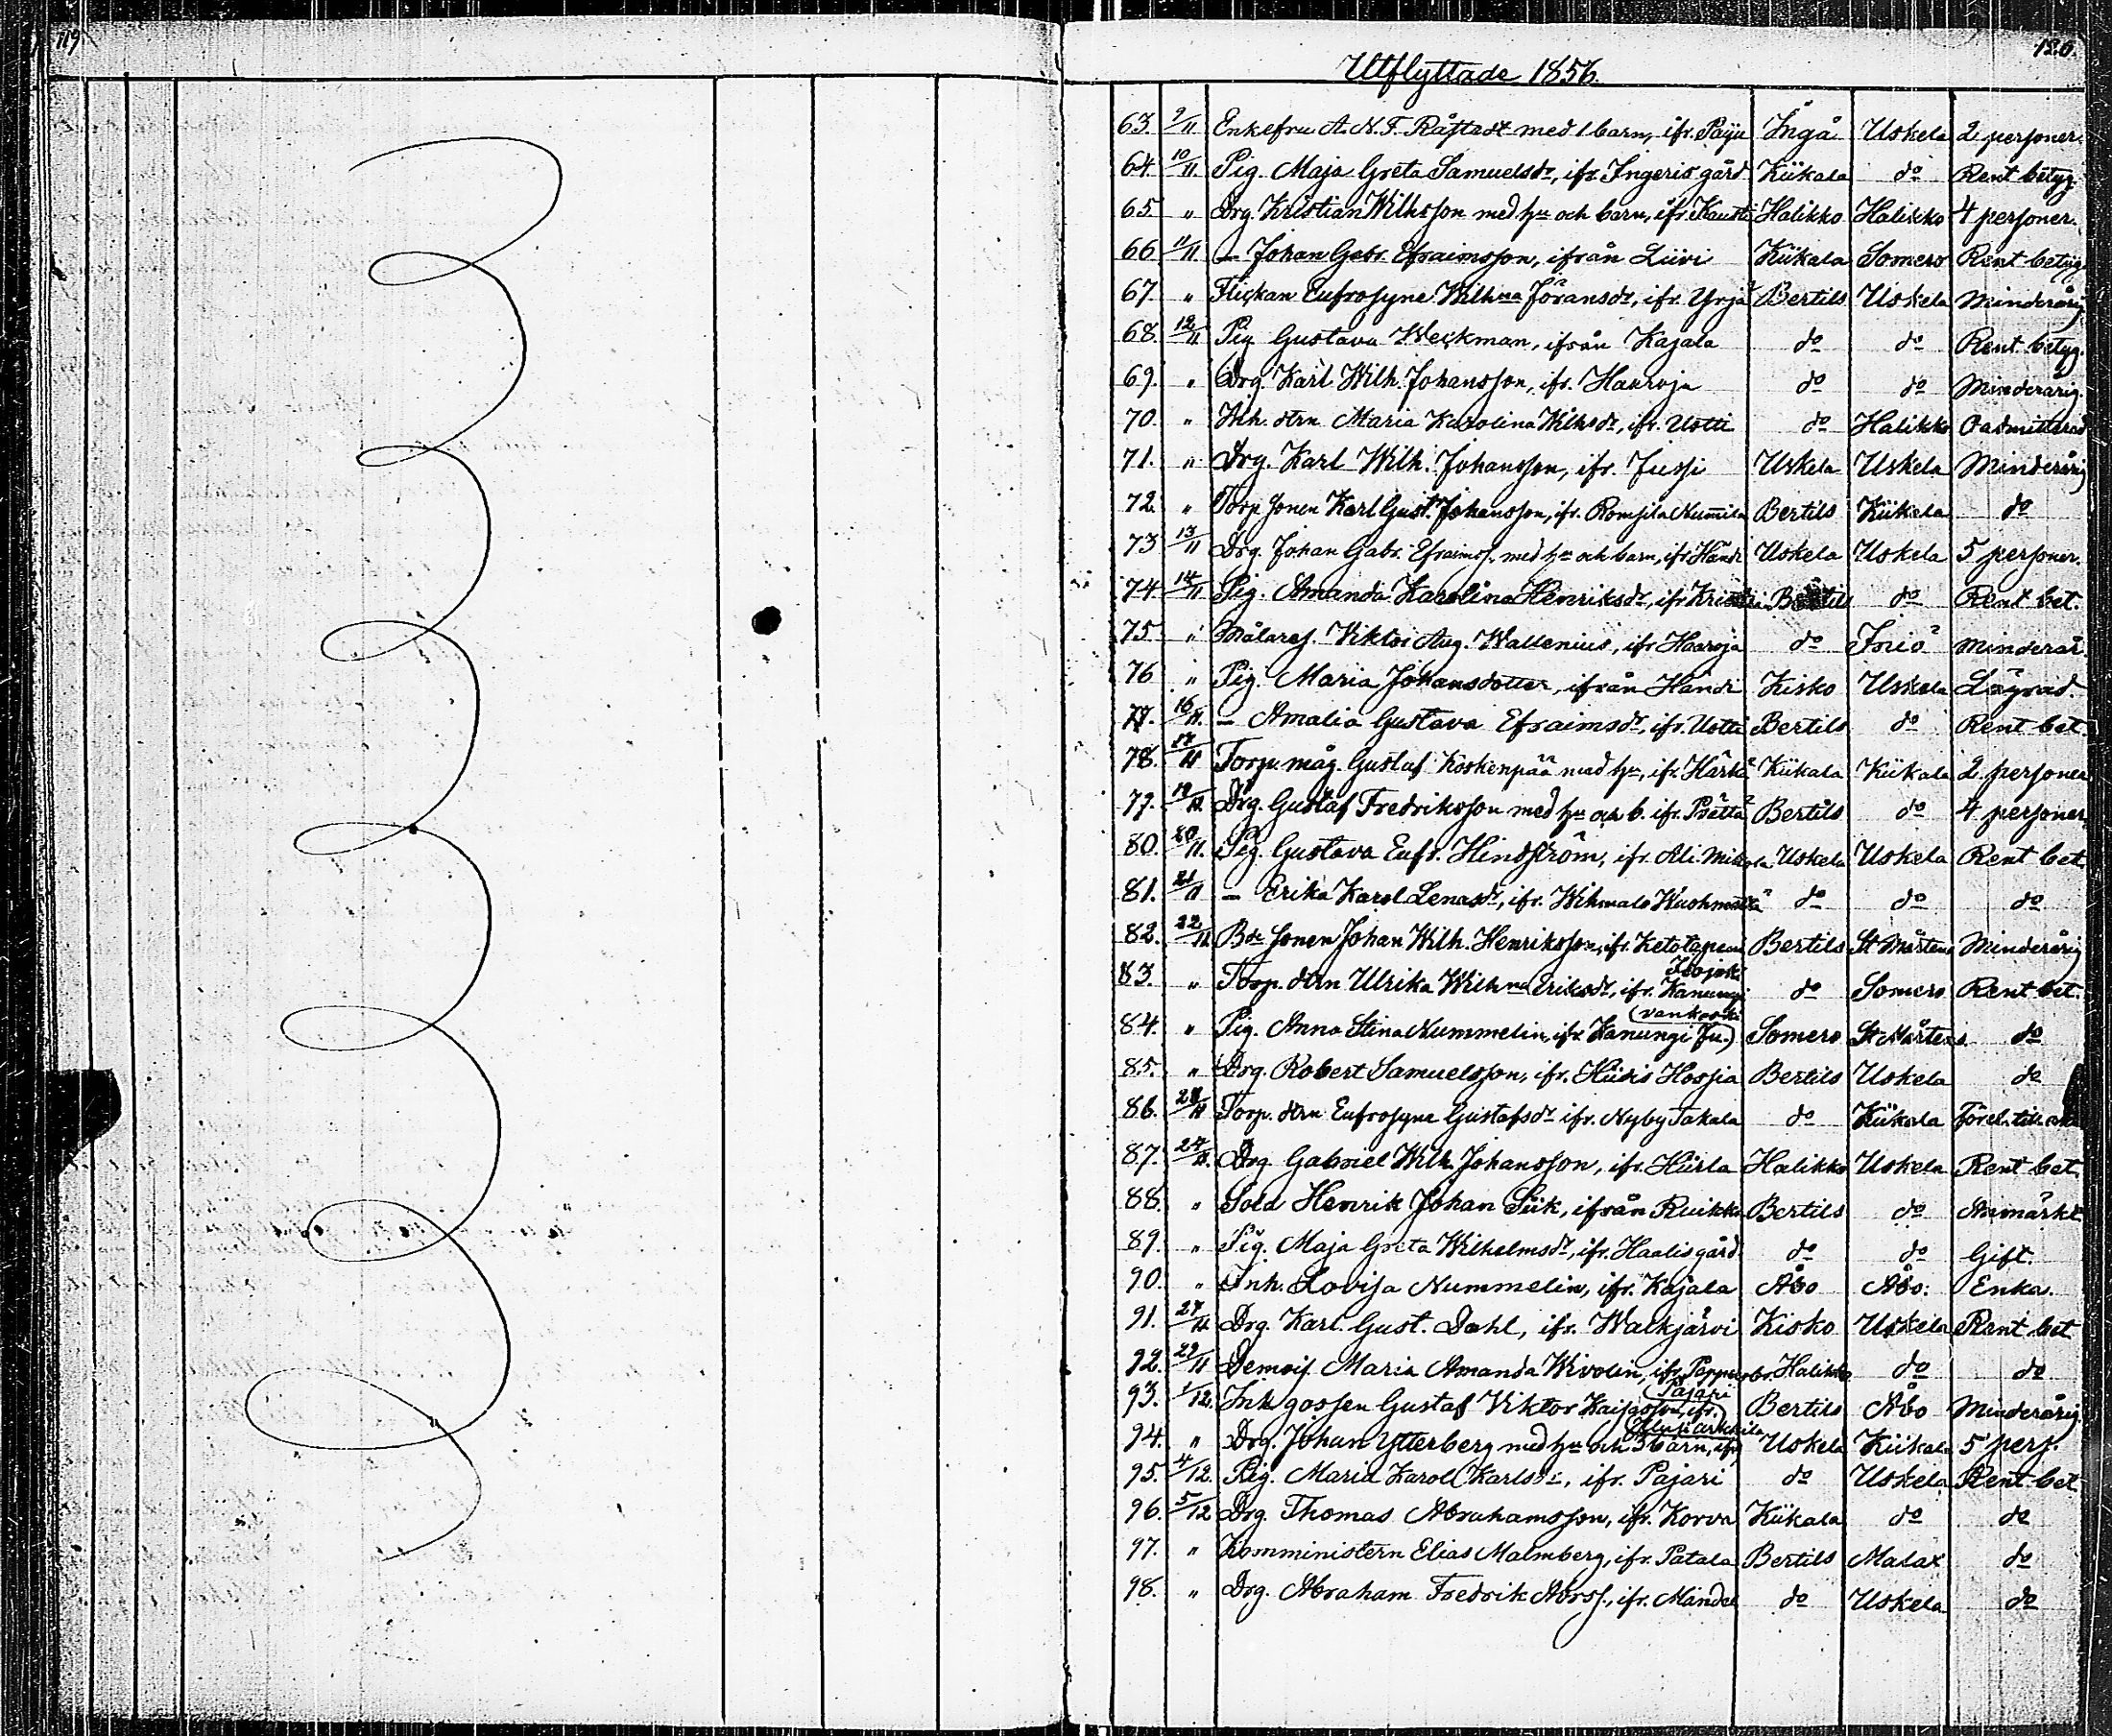 119
120.
Utflyttade 1856.
63. 9/11 Enkefru A. N. F. Råstedt med 1 barn, ifr. Paju Ingå Uskela 2 personer.
64. 10/11 Pig. Maja Greta Samuelsdr, ifr. Ingeris gård Kiikala do Rent betyg.
65. " Drg. Kristian Wilhsson med hu och barn, ifr. Kausti Halikko Halikko 4 personer.
66 11/11 – Johan Gabr. Efraimsson, ifrån Liivi Kiikala Somero Rent betyg.
67. " Flickan Eufrosyne Wilhna Jöransdr, ifr. Yrjä Bertils Uskela Minderårig
68. 12/11 Pig Gustava Weckman, ifrån Kajala do do Rent betyg.
69. " Drg. Karl Wilh. Johansson, ifr. Haaroja do do Minderårig.
70. " Inh. dtrn Maria Karolina Wilhsdr, ifr. Uotti do Halikko Oadmitterad
71. " Drg. Karl Wilh. Johansson, ifr. Jussi Uskela Uskela Minderårig
72. " Torp. sonen Karl Gust. Johansson, ifr. Romsila Nummila Bertils Kiikala do
73 13/11 Drg. Johan Gabr. Efraimss. med hu och barn, ifr. Händi Uskela Uskela 5 personer.
74 14/11 Pig. Amanda Karolina Henriksdr, ifr. Bertils do Rent bet.
75 " Målares. Viktor Aug. Wallenius, ifr. Haaroja do Iniö Minderår.
76 " Pig. Maria Johansdotter, ifrån Händi Kisko Uskela Lägrad.
77. 16/11. – Amalia Gustava Efraimsdr, ifr. Uotti Bertils do Rent bet
78. 17/11 Torp. måg. Gustaf Koskenpää med hu, ifr. Härkä Kiikala Kiikala 2 personer
79. 19/11. Drg. Gustaf Fredriksson med hu och b. ifr. Pöättä Bertils do 4 personer
80. 20/11. Pig. Gustava Eufr. Hindström, ifr. Ali Mikola Uskela Uskela Rent bet.
81. 21/11 – Erika Karol Lenasdr, ifr. do do do
82. 22/11. Bde sonen Johan Wilh. Henriksson, ifr. Ketotapani Bertils St Mårtens Minderårig
83. " Torp. dtrn Ulrika Wilhna Eriksdr, ifr. Kanungi do Somero Rent bet.
(vankoski
84. " Pig. Anna Stina Nummelin, ifr. Kanungi Ju.) Somero St Mårtens. do
85. " Drg. Robert Samuelsson, ifr. Hiisis Hossia Bertils Uskela do
86. Torp. dtrn Eufrosyne Gustafsdr ifr. Nyby Takala do Kiikala Förel. till
87. 24/11. Drg Gabriel Wilh. Johansson, ifr. Hiirla Halikko Uskela Rent bet.
88. " Sold Henrik Johan Siik, ifrån Ruikka Bertils do Anmärkt
89. " Pig. Maja Greta Wilhelmsdr, ifr. Haalis gård do do Gift.
90. " Inh. Lovisa Nummelin, ifr. Kajala Åbo Åbo. Enka.
91. 27/11 Drg. Karl Gust. Dahl, ifr. Walkjärvi Kisko Uskela Rent bet
92. 29/11 Demois. Maria Amanda Wivolin, ifr. Pappersbr. Halikko do do
(Pajari
93. 1/12. Inh gossen Gustaf Viktor Kaijasson, ifr.) Bertils Åbo Minderårig
94. " Drg. Johan Ytterberg med hu och 3 barn, ifr) Uskela Kiikala 5 pers.
95. 4/12. Pig. Maria Karol Karlsdr, ifr. Pajari do Uskela Rent bet
96. 5/12 Drg. Thomas Abrahamsson, ifr. Korva Kiikala do do
97. " Komministern Elias Malmberg, ifr. Patala Bertils Malax do
98. " Drg. Abraham Fredrik Abrss., ifr. Mandel do Uskela do